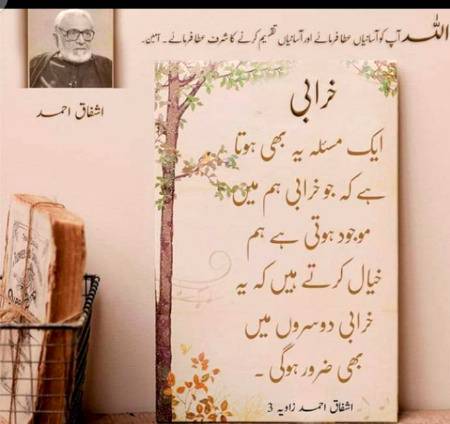 اللہ آپ کو آسانیاں عطا فرمائے اور آسانیاں تقسیم کرنے کا شرف عطا فرمائے۔ آمین۔
اشفاق احمد
خرابی
ایک مسئلہ یہ بھی ہوتا
ہے کہ جو خرابی ہم میں
موجود ہوتی ہے ہم
خیال کرتے ہیں کہ یہ
خرابی دوسروں میں
بھی ضرور ہوگی ۔
اشفاق احمد زاویہ 3